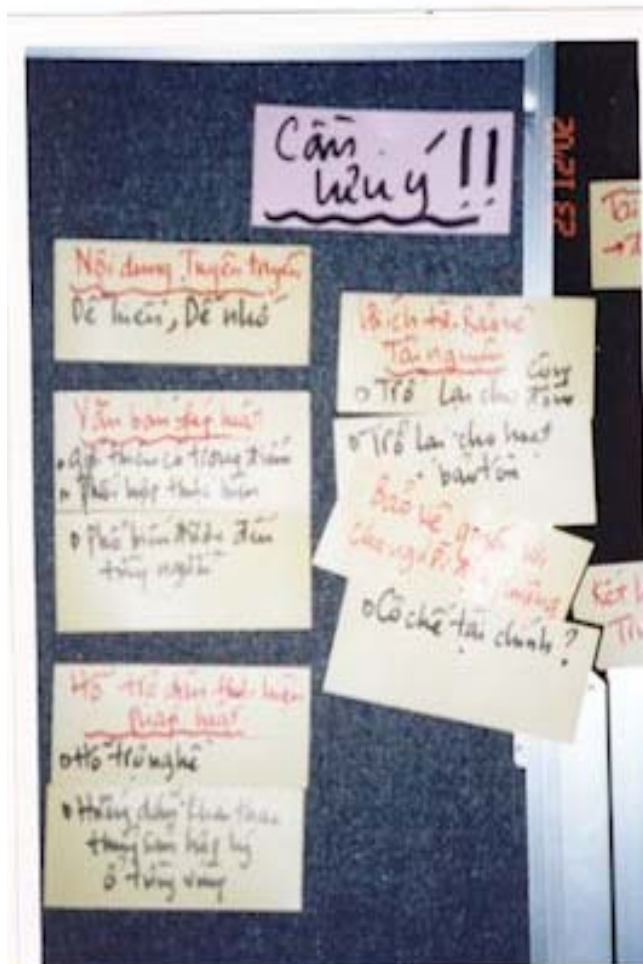 Cần
lưu ý !!
23 12 '02
Nội dung Tuyên truyền
Dễ hiểu, Dễ nhớ
Văn bản pháp luật
• Phối hợp thực hiện
• Phổ biến được đến
từng người
Hỗ trợ dân thực hiện
pháp luật
• Hỗ trợ nghề
• Hướng dẫn khai thác
thủy sản hợp lý
ở từng vùng
Tài nguyên
• Trở lại cho Cộng đồng
• Trở lại cho hoạt
bảo tồn
Bảo vệ quyền lợi
cho người
• Cơ chế tài chính?